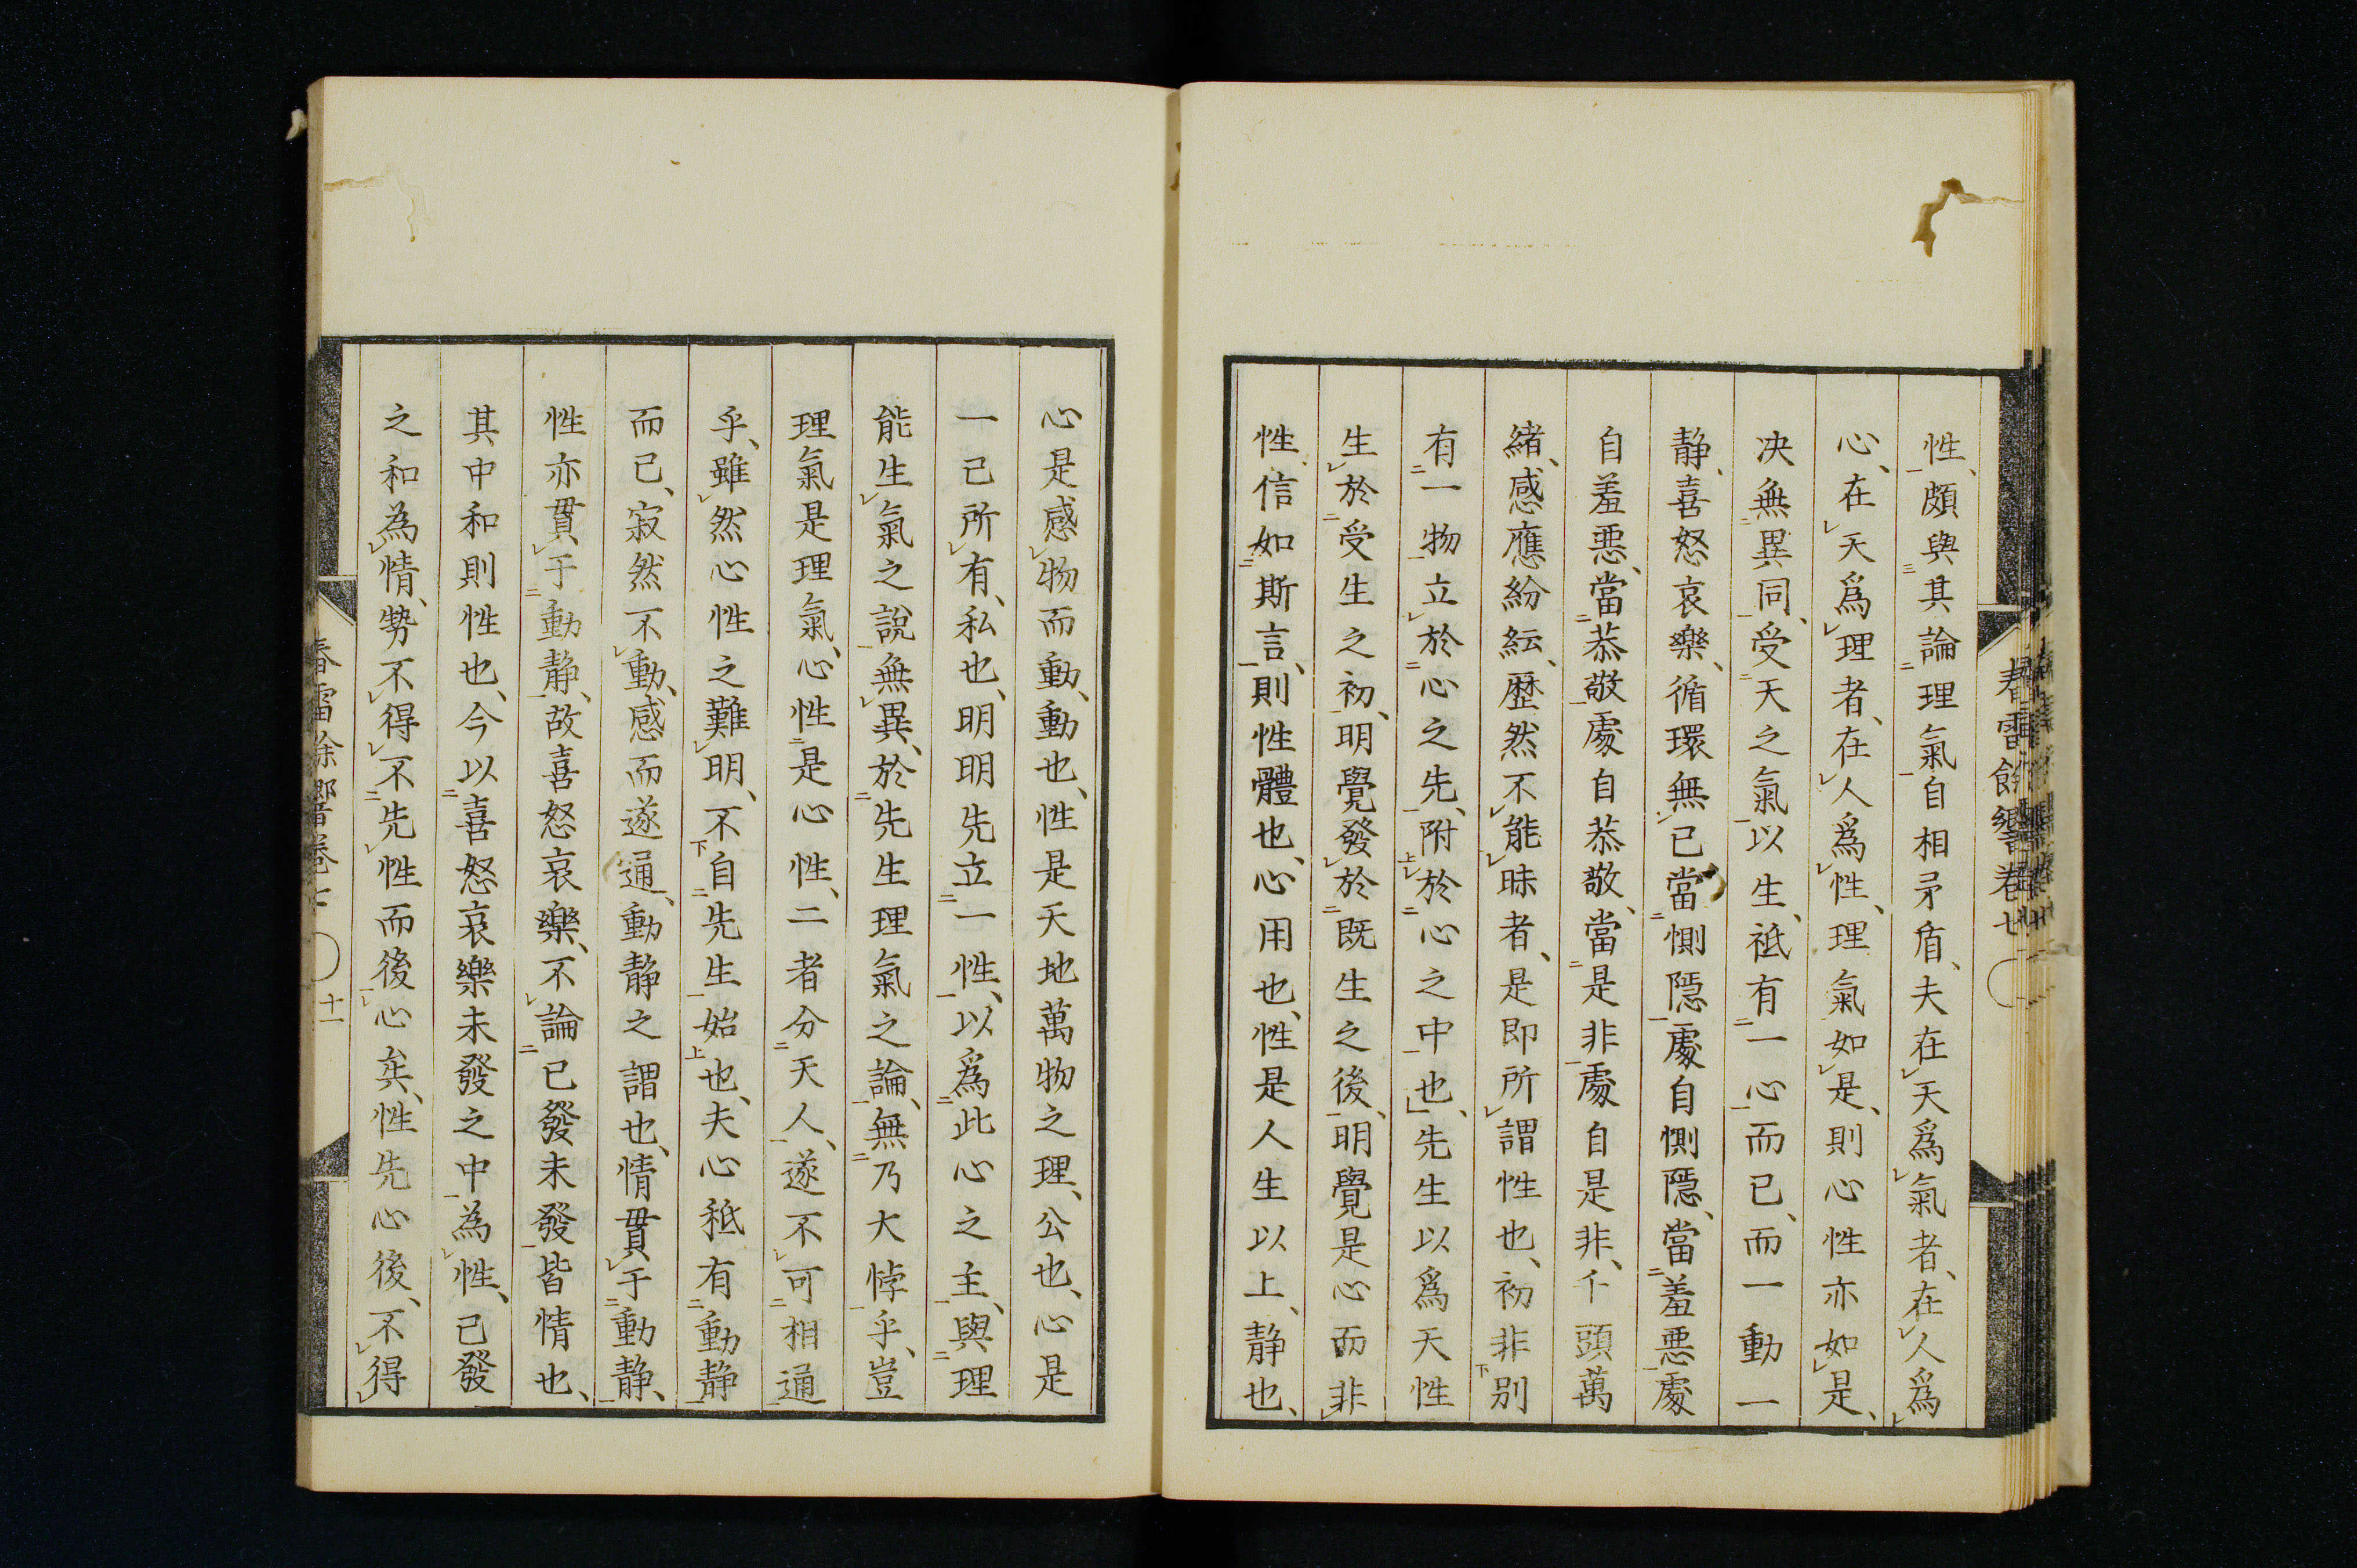 春雷餘響卷七
性、頗與其論理氣自相矛盾、夫在天爲氣者、在人爲
心、在天爲理者、在人爲性、理氣如是、則心性亦如是、
决無異同、受天之氣以生、祗有一心而已、而一動一
静、喜怒哀樂、循環無已、當惻隠處自惻隠、當羞悪處
自羞悪、當恭敬處自恭敬、當是非處自是非、千頭萬
緒、感應紛紜、歴然不能昧者、是即所謂性也、初非別
有一物立於心之先、附於心之中也、先生以爲天性
生於受生之初、明覺發於既生之後、明覺是心而非
性、信如斯言、則性體也、心用也、性是人生以上、静也、
心是感物而動、動也、性是天地萬物之理、公也、心是
一己所有、私也、明明先立一性、以爲此心之主、與理
能生氣之說無異、於先生理氣之論、無乃大悖乎、豈
理氣是理氣、心性是心性、二者分天人、遂不可相通
乎、雖然心性之難明、不自先生始也、夫心秪有動静
而已、寂然不動、感而遂通、動静之謂也、情貫于動静、
性亦貫于動静、故喜怒哀樂、不論已發未發皆情也、
其中和則性也、今以喜怒哀樂未發之中為性、已發
之和為情、勢不得不先性而後心矣、性先心後、不得
春雷餘響卷七
十一